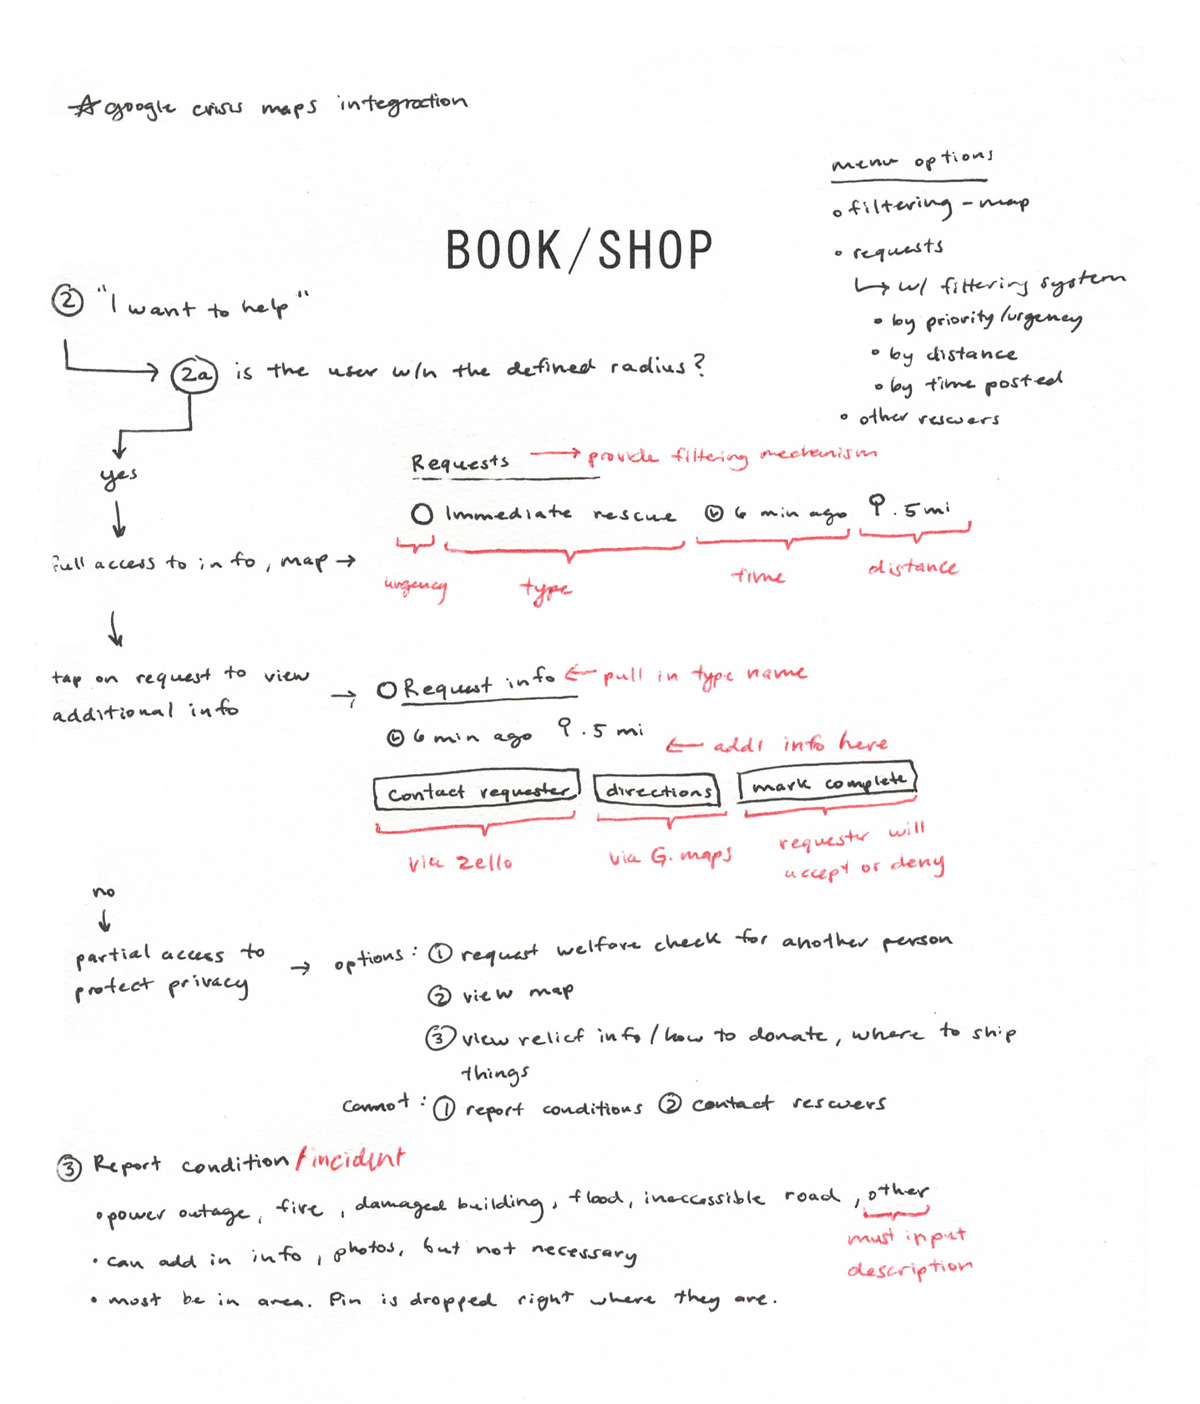 ☆ google crisis maps integration
menu options
• filtering - map
• requests
↳ w/ filtering system
• by priority/urgency
• by distance
• by time posted
• other rescuers
BOOK/SHOP
② "I want to help"
2a is the user w/n the defined radius?
yes
Requests → provide filtering mechanism
○ Immediate rescue 6 min ago .5 mi
urgency type time distance
full access to info, map →
tap on request to view
additional info
→ ○ Request info ← pull in type name
6 min ago .5 mi
← addl info here
contact requester directions mark complete
via zello via G. maps requester will
accept or deny
no
partial access to
protect privacy
→ options: ① request welfare check for another person
② view map
③ view relief info / how to donate, where to ship
things
cannot: ① report conditions ② contact rescuers
③ Report condition/incident
• power outage, fire, damaged building, flood, inaccessible road, other
must input
description
• can add in info, photos, but not necessary
• must be in area. Pin is dropped right where they are.